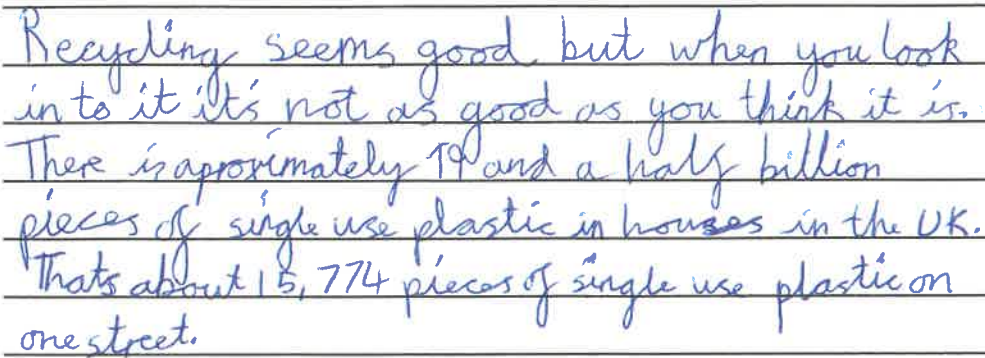 Recycling seems good but when you look
in to it it's not as good as you think it is.
There is aproximately 19 and a half billion
pieces of single use plastic in houses in the UK.
Thats about 15,774 pieces of single use plastic on
one street.